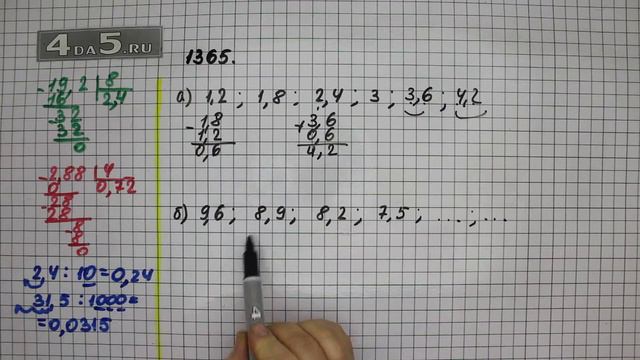 4DA5.RU
1365.
а) 1,2 ; 1,8 ; 2,4 ; 3 ; 3,6 ; 4,2
- 1,8
1,2
0,6
+ 3,6
0,6
4,2
б) 9,6 ; 8,9 ; 8,2 ; 7,5 ; ... ; ...
- 19,2 | 8
16 2,4
- 32
32
0
- 2,88 | 4
0 0,72
- 28
28
- 8
8
0
2,4 : 10 = 0,24
31,5 : 1000 =
= 0,0315